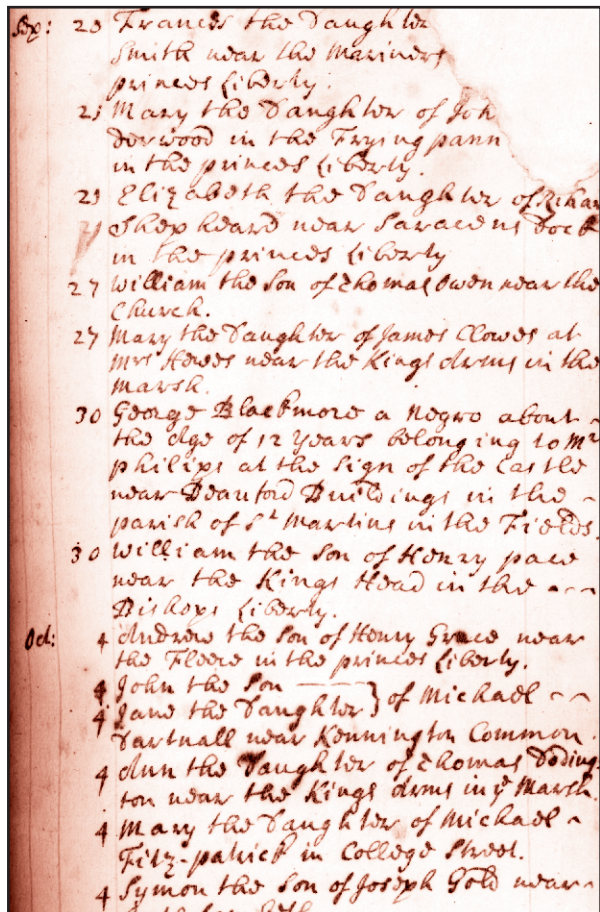 Sep: 23 Frances the Daughter
Smith near the Mariners
princes Liberty.
23 Mary the Daughter of Joh
derwood in the Frying pann
in the princes Liberty.
23 Elizabeth the Daughter of Richar
Shepheard near Saracens Dock
in the princes Liberty
27 William the Son of Thomas Owen near the
Church.
27 Mary the Daughter of James Clowes at
Mrs Hewes near the Kings Arms in the
Marsh.
30 George Blackmore a Negro about
the Age of 12 Years belonging to Mr
philips at the Sign of the Castle
near Beauford Buildings in the
parish of St Martins in the Fields.
30 William the Son of Henry pace
near the Kings Head in the
Bishops Liberty.
Oct: 4 Andrew the Son of Henry Grace near
the Fleece in the princes Liberty.
4 John the Son
4 Jane the Daughter } of Michael
Dartnall near Kennington Common.
4 Ann the Daughter of Thomas Doding-
ton near the Kings Arms in ye Marsh.
4 Mary the Daughter of Michael
Fitz-patrick in College Street.
4 Symon the Son of Joseph Gold near